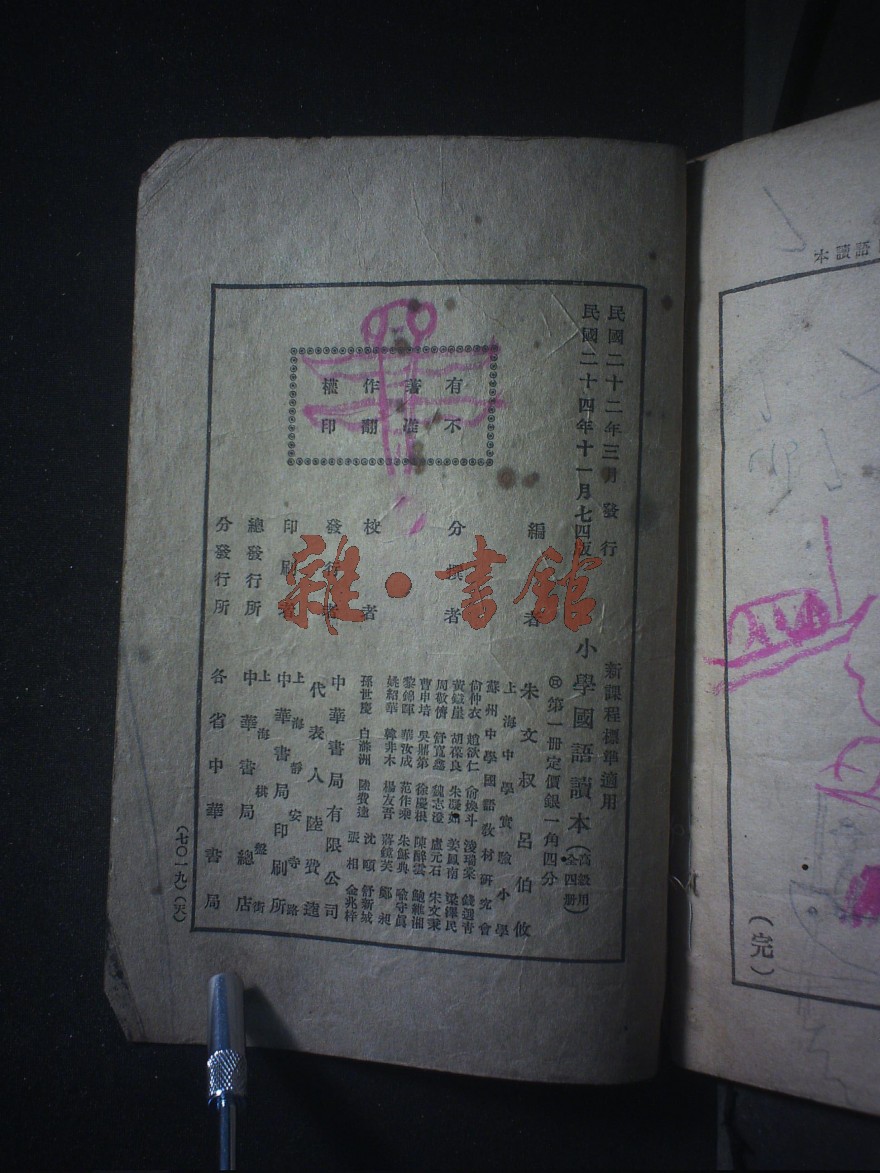 民國二十二年三月發行
民國二十四年十一月七四版
有著作權
不准翻印
新課程標準適用
小學國語讀本（高級用 全四册）
第一册定價銀一角四分
編者 朱文叔 呂伯攸
上海中學實驗小學
蘇州中學國語教材研究會
分撰者
俞仲衣 趙欲仁 俞煥斗 淩瑞棠 錢選青
黃鐵崖 胡葆良 姜鳳南 梁鋆民
周敬儕 舒寬鑫 魏志澄 盧元石 宋文秉
曹申培 吳鼎第 徐慶根 陳醉雲 鮑維湘
黎錦暉 華汝成 范作乘 朱穌典 喻守眞
姚紹華 韓非木 楊友吾 蔣鏡芙 鄭昶
校者
孫世慶 白滌洲 陸費逵 沈頤 舒新城
張相 金兆梓
發行者 中華書局有限公司
代表人 陸費逵
印刷者 上海靜安寺路
中華書局印刷所
總發行所 上海棋盤街
中華書局總店
分發行所 各省中華書局
（七〇一九）（天）
雜·書館
語讀本
（完）